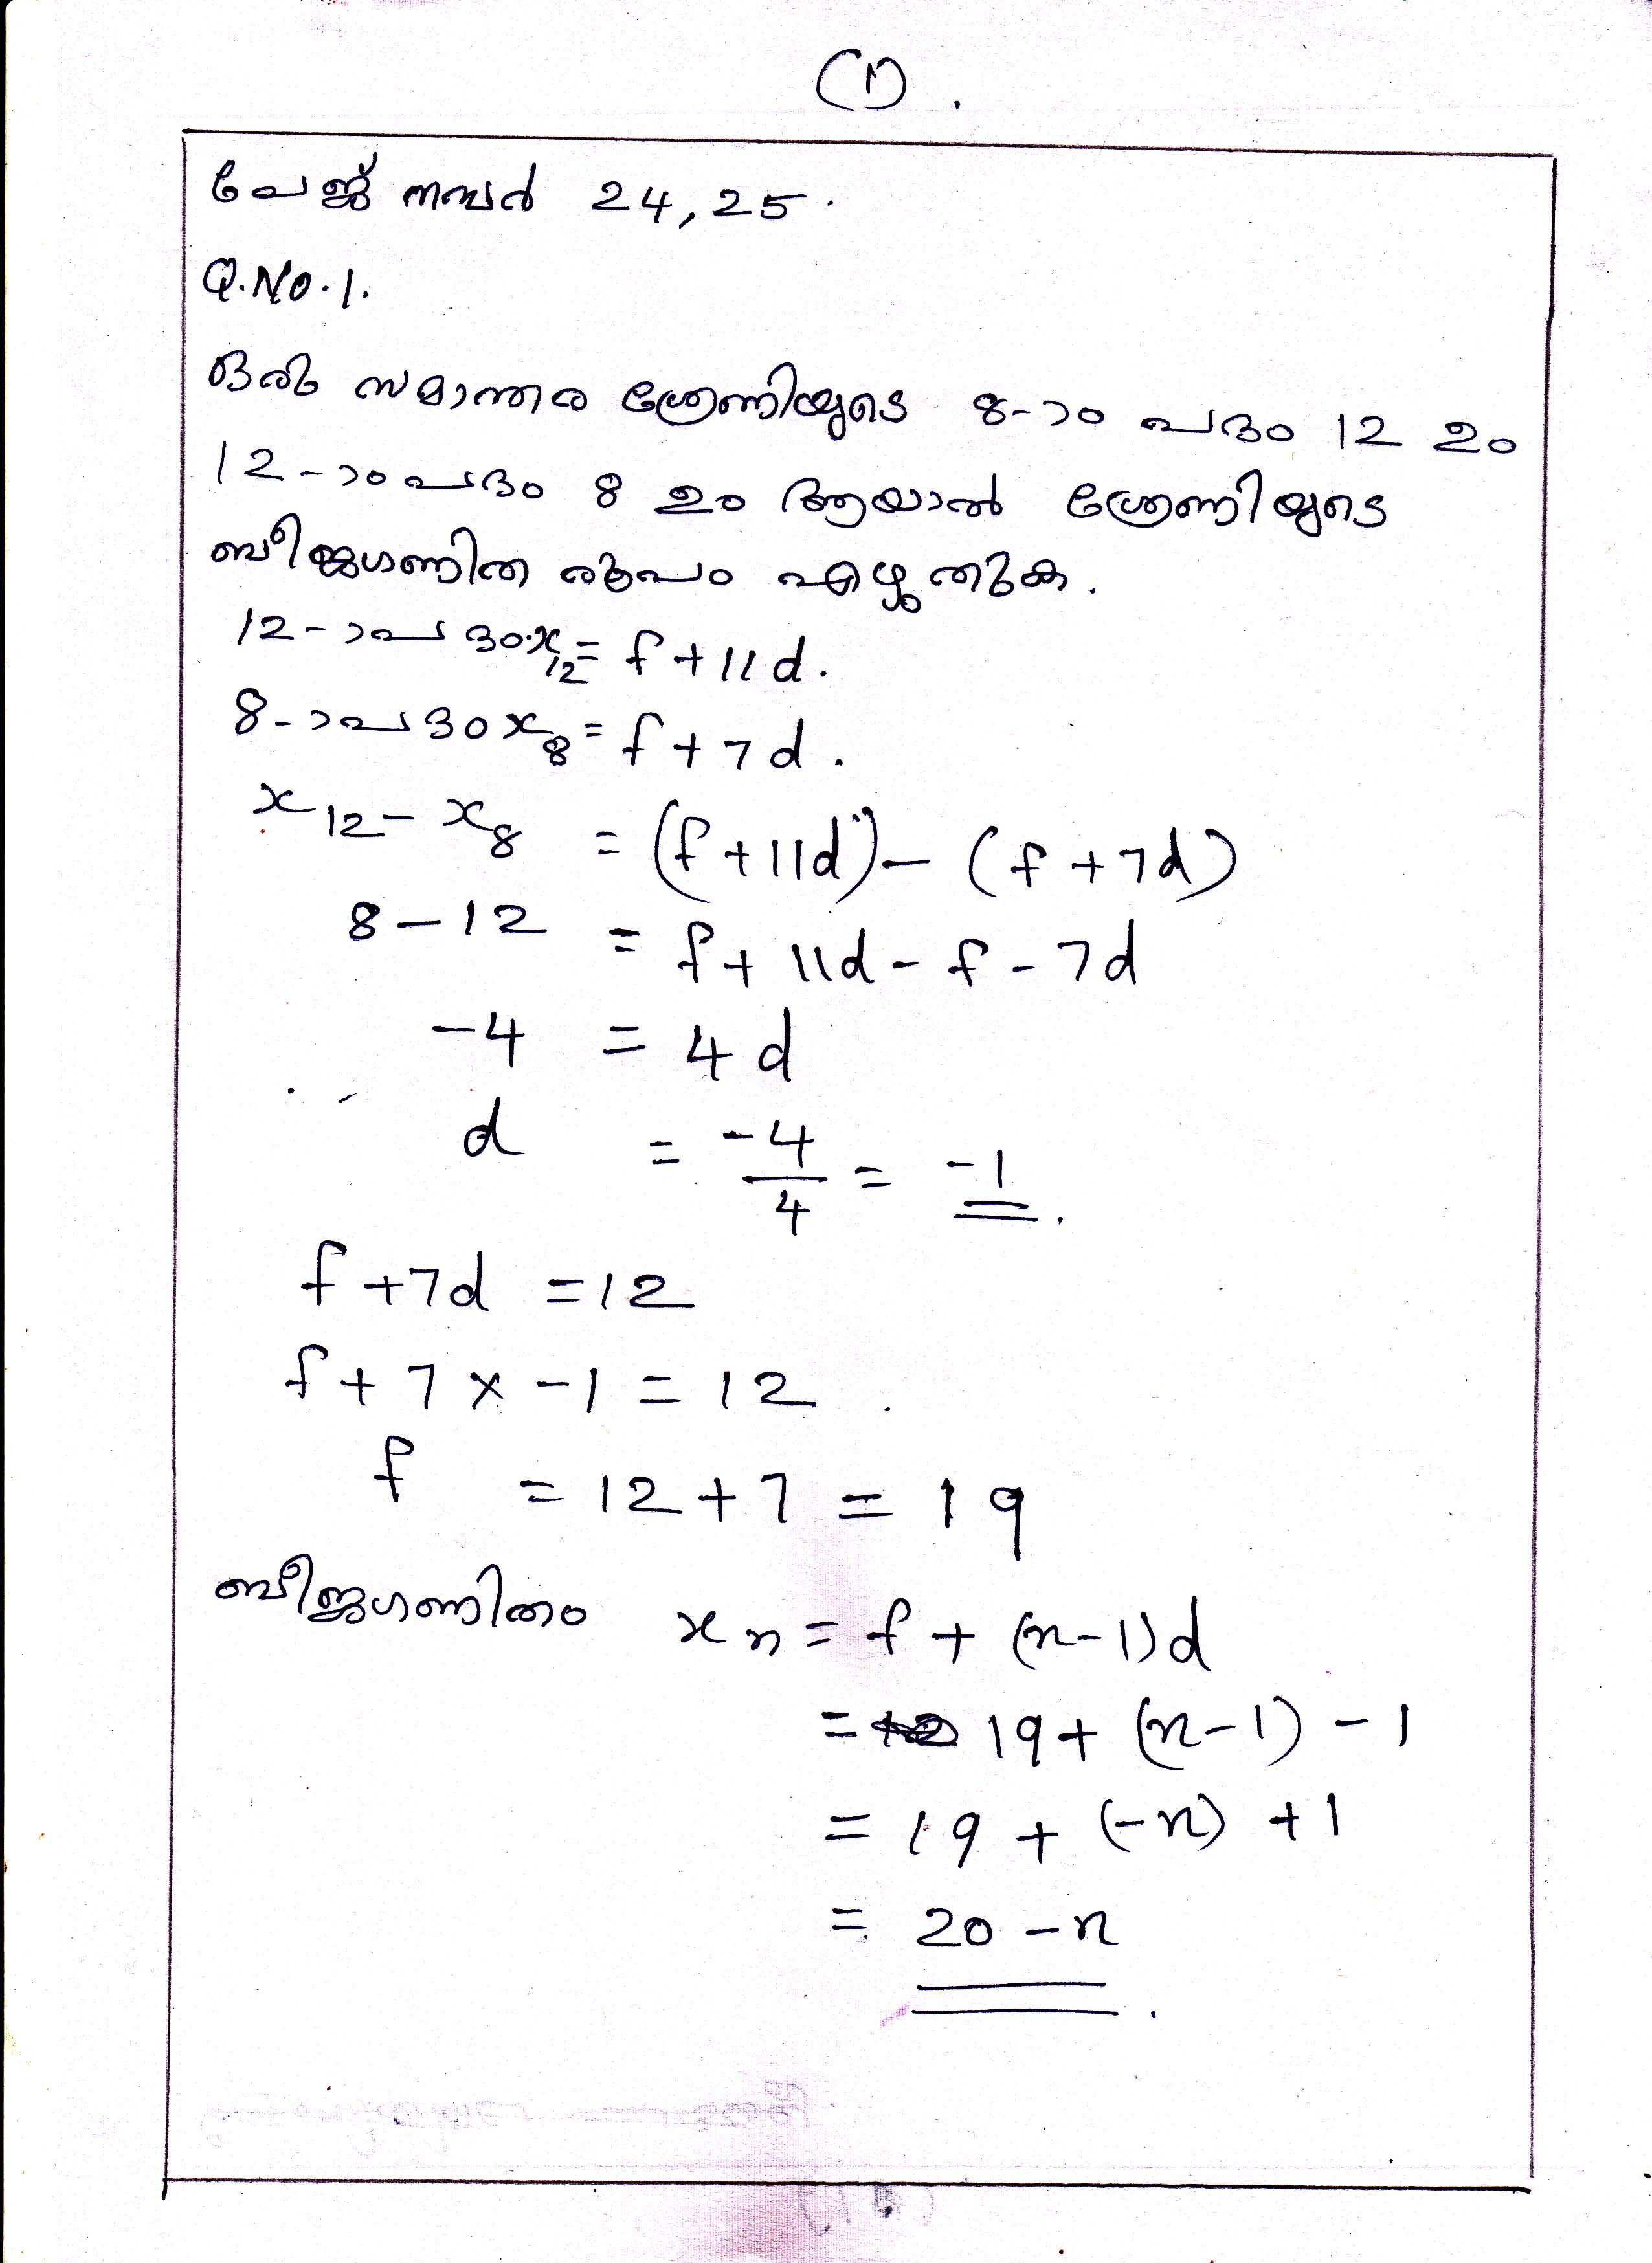 (1).
പേജ് നമ്പർ 24, 25.
Q.No.1.
ഒരു സമാന്തര ശ്രേണിയുടെ 8-ാം പദം 12 ഉം
12-ാം പദം 8 ഉം ആയാൽ ശ്രേണിയുടെ
ബീജഗണിത രൂപം എഴുതുക.
12-ാം പദം x₁₂ = f + 11d.
8-ാം പദം x₈ = f + 7d.
x₁₂ - x₈ = (f + 11d) - (f + 7d)
8 - 12 = f + 11d - f - 7d
-4 = 4d
d = -4/4 = -1.
f + 7d = 12
f + 7 x -1 = 12
f = 12 + 7 = 19
ബീജഗണിതം xₙ = f + (n-1)d
= 19 + (n-1) -1
= 19 + (-n) + 1
= 20 - n.